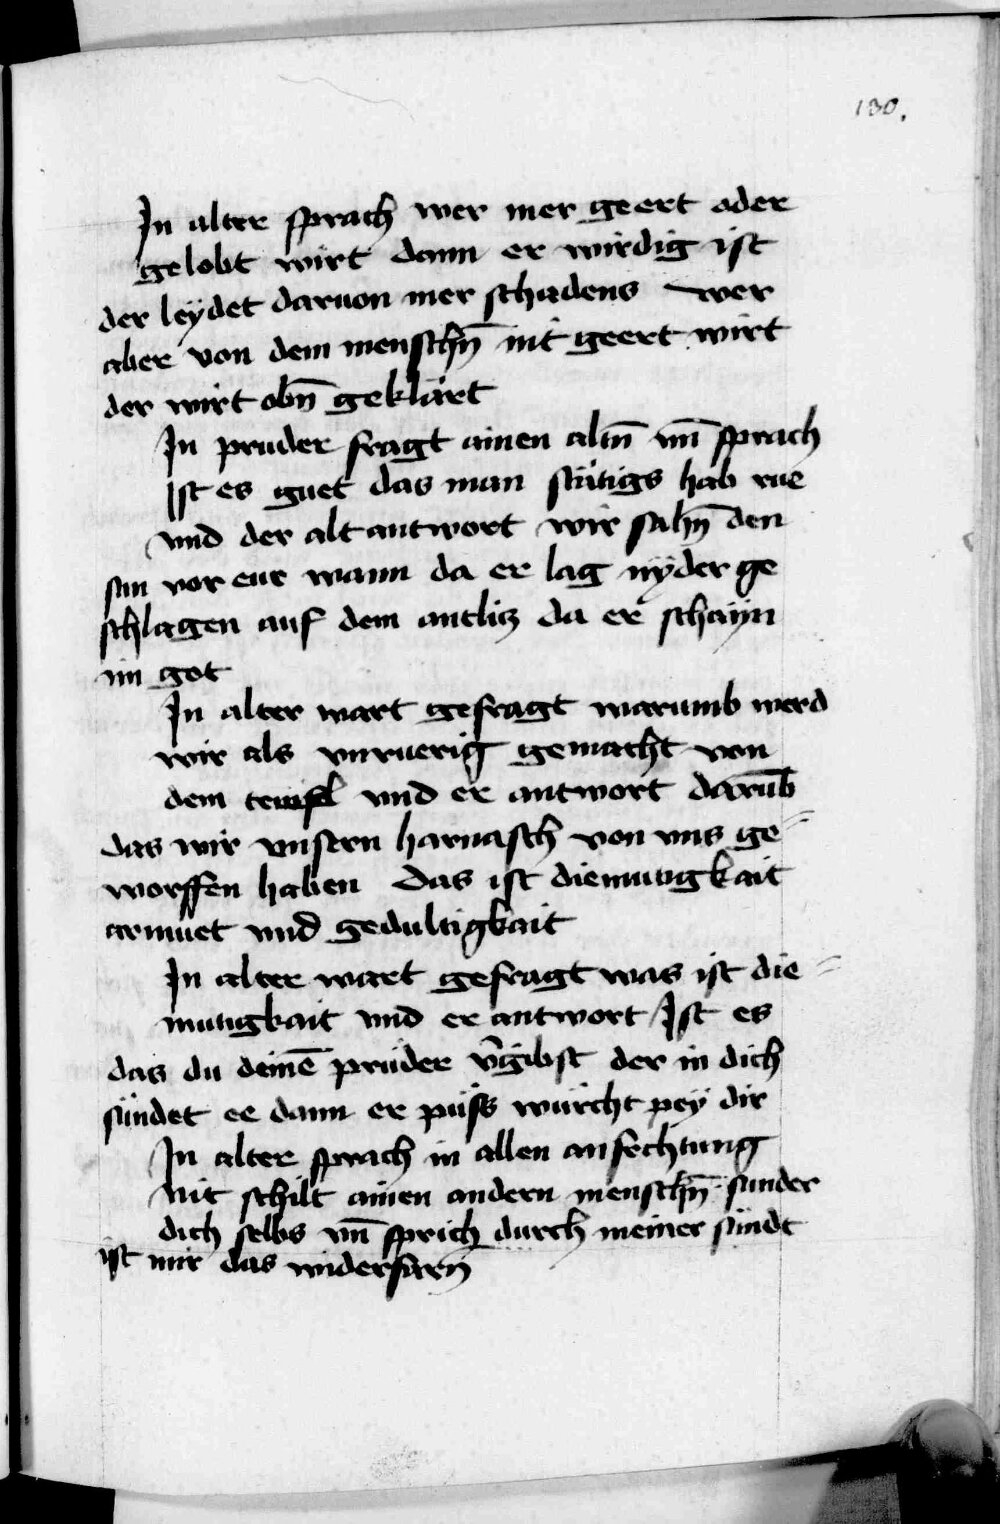 130.
In alter sprach wer mer geert oder
gelobt wirt dann er wirdig ist
der leÿdet daruon mer schadens wer
aber von dem menschn̄ nit geert wirt
der wirt obn̄ geklärt
In pruder fragt ainen altn̄ vn̄ sprach
Ist es guet das man stätigs hab rue
vnd der alt antwort wir sahn̄ den
sun vor eur wann da er lag nÿder ge
schlagen auf dem antlitz da er schaÿn
im got
In alter wart gefragt warumb werd
wir als vnruerig gemacht von
dem teuifel vnd er antwort darūb
das wir vnsern harnasch von vns ge=
worffen haben das ist diemutigkait
armuet vnd gedultigkait
In alter wart gefragt was ist die=
mutigkait vnd er antwort Ist es
das du deinē prüder v̄gibst der in dich
sündet ee dann er püss würcht peÿ dir
In alter sprach in allen anfechtung
nit schilt ainen andern menschn̄ sunder
dich selbs vn̄ sprich durch meiner sündt
ist mir das widerfarn̄